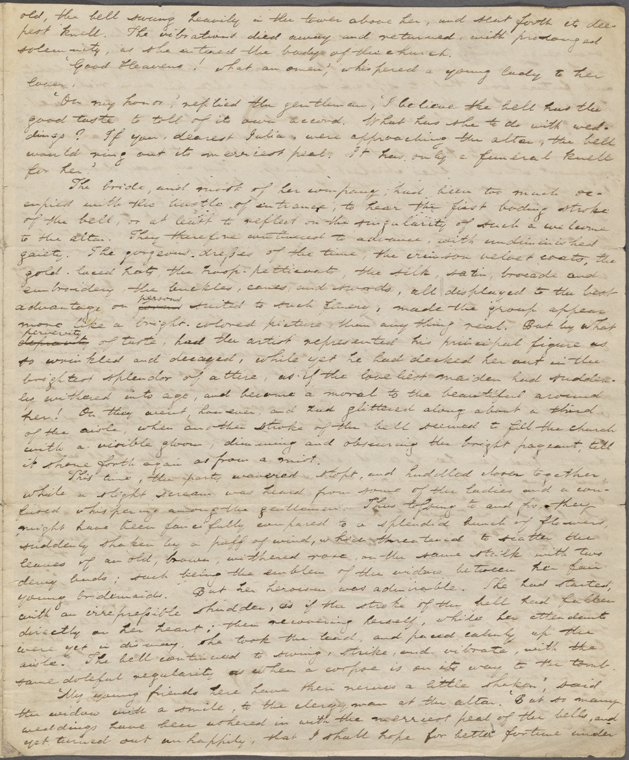 old, the bell swung heavily in the tower above her, and sent forth its dee-
pest knell. The vibrations died away and returned, with prolonged
solemnity, as she entered the body of the church.
'Good Heavens! what an omen,' whispered a young lady to her
lover.
'On my honor,' replied the gentleman, 'I believe the bell has the
good taste to toll of its own accord. What has she to do with wed-
dings? If you, dearest Julia, were approaching the altar, the bell
would ring out its merriest peal. It has only a funeral knell
for her.'
The bride, and most of her company, had been too much oc-
cupied with the bustle of entrance, to hear the first boding stroke
of the bell, or at least to reflect on the singularity of such a welcome
to the altar. They therefore continued to advance, with undiminished
gaiety. The gorgeous dresses of the time, the crimson velvet coats, the
gold-laced hats, the hoop-petticoats, the silk, satin, brocade and
embroidery, the buckles, canes and swords, all displayed to the best
advantage on persons suited to such finery, made the group appear
more like a bright-colored picture, than any thing real. But by what
perversity of taste, had the artist represented his principal figure as
so wrinkled and decayed, while yet he had decked her out in the
brightest splendor of attire, as if the loveliest maiden had sudden-
ly withered into age, and become a moral to the beautiful around
her! On they went, however, and had glittered along about a third
of the aisle, when another stroke of the bell seemed to fill the church
with a visible gloom, dimming and obscuring the bright pageant, till
it shone forth again as from a mist.
This time, the party wavered, stopt, and huddled closer together,
while a slight scream was heard from some of the ladies, and a con-
fused whispering among the gentlemen. Thus tossing to and fro, they
might have been fancifully compared to a splendid bunch of flowers,
suddenly shaken by a puff of wind, which threatened to scatter the
leaves of an old, brown, withered rose, on the same stalk with two
dewy buds; such being the emblem of the widow between her fair
young bridemaids. But her heroism was admirable. She had started,
with an irrepressible shudder, as if the stroke of the bell had fallen
directly on her heart; then recovering herself, while her attendants
were yet in dismay, she took the lead, and paced calmly up the
aisle. The bell continued to swing, strike, and vibrate, with the
same doleful regularity, as when a corpse is on its way to the tomb.
'My young friends here have their nerves a little shaken,' said
the widow, with a smile, to the clergyman at the altar. 'But so many
weddings have been ushered in with the merriest peal of the bells, and
yet turned out unhappily, that I shall hope for better fortune under